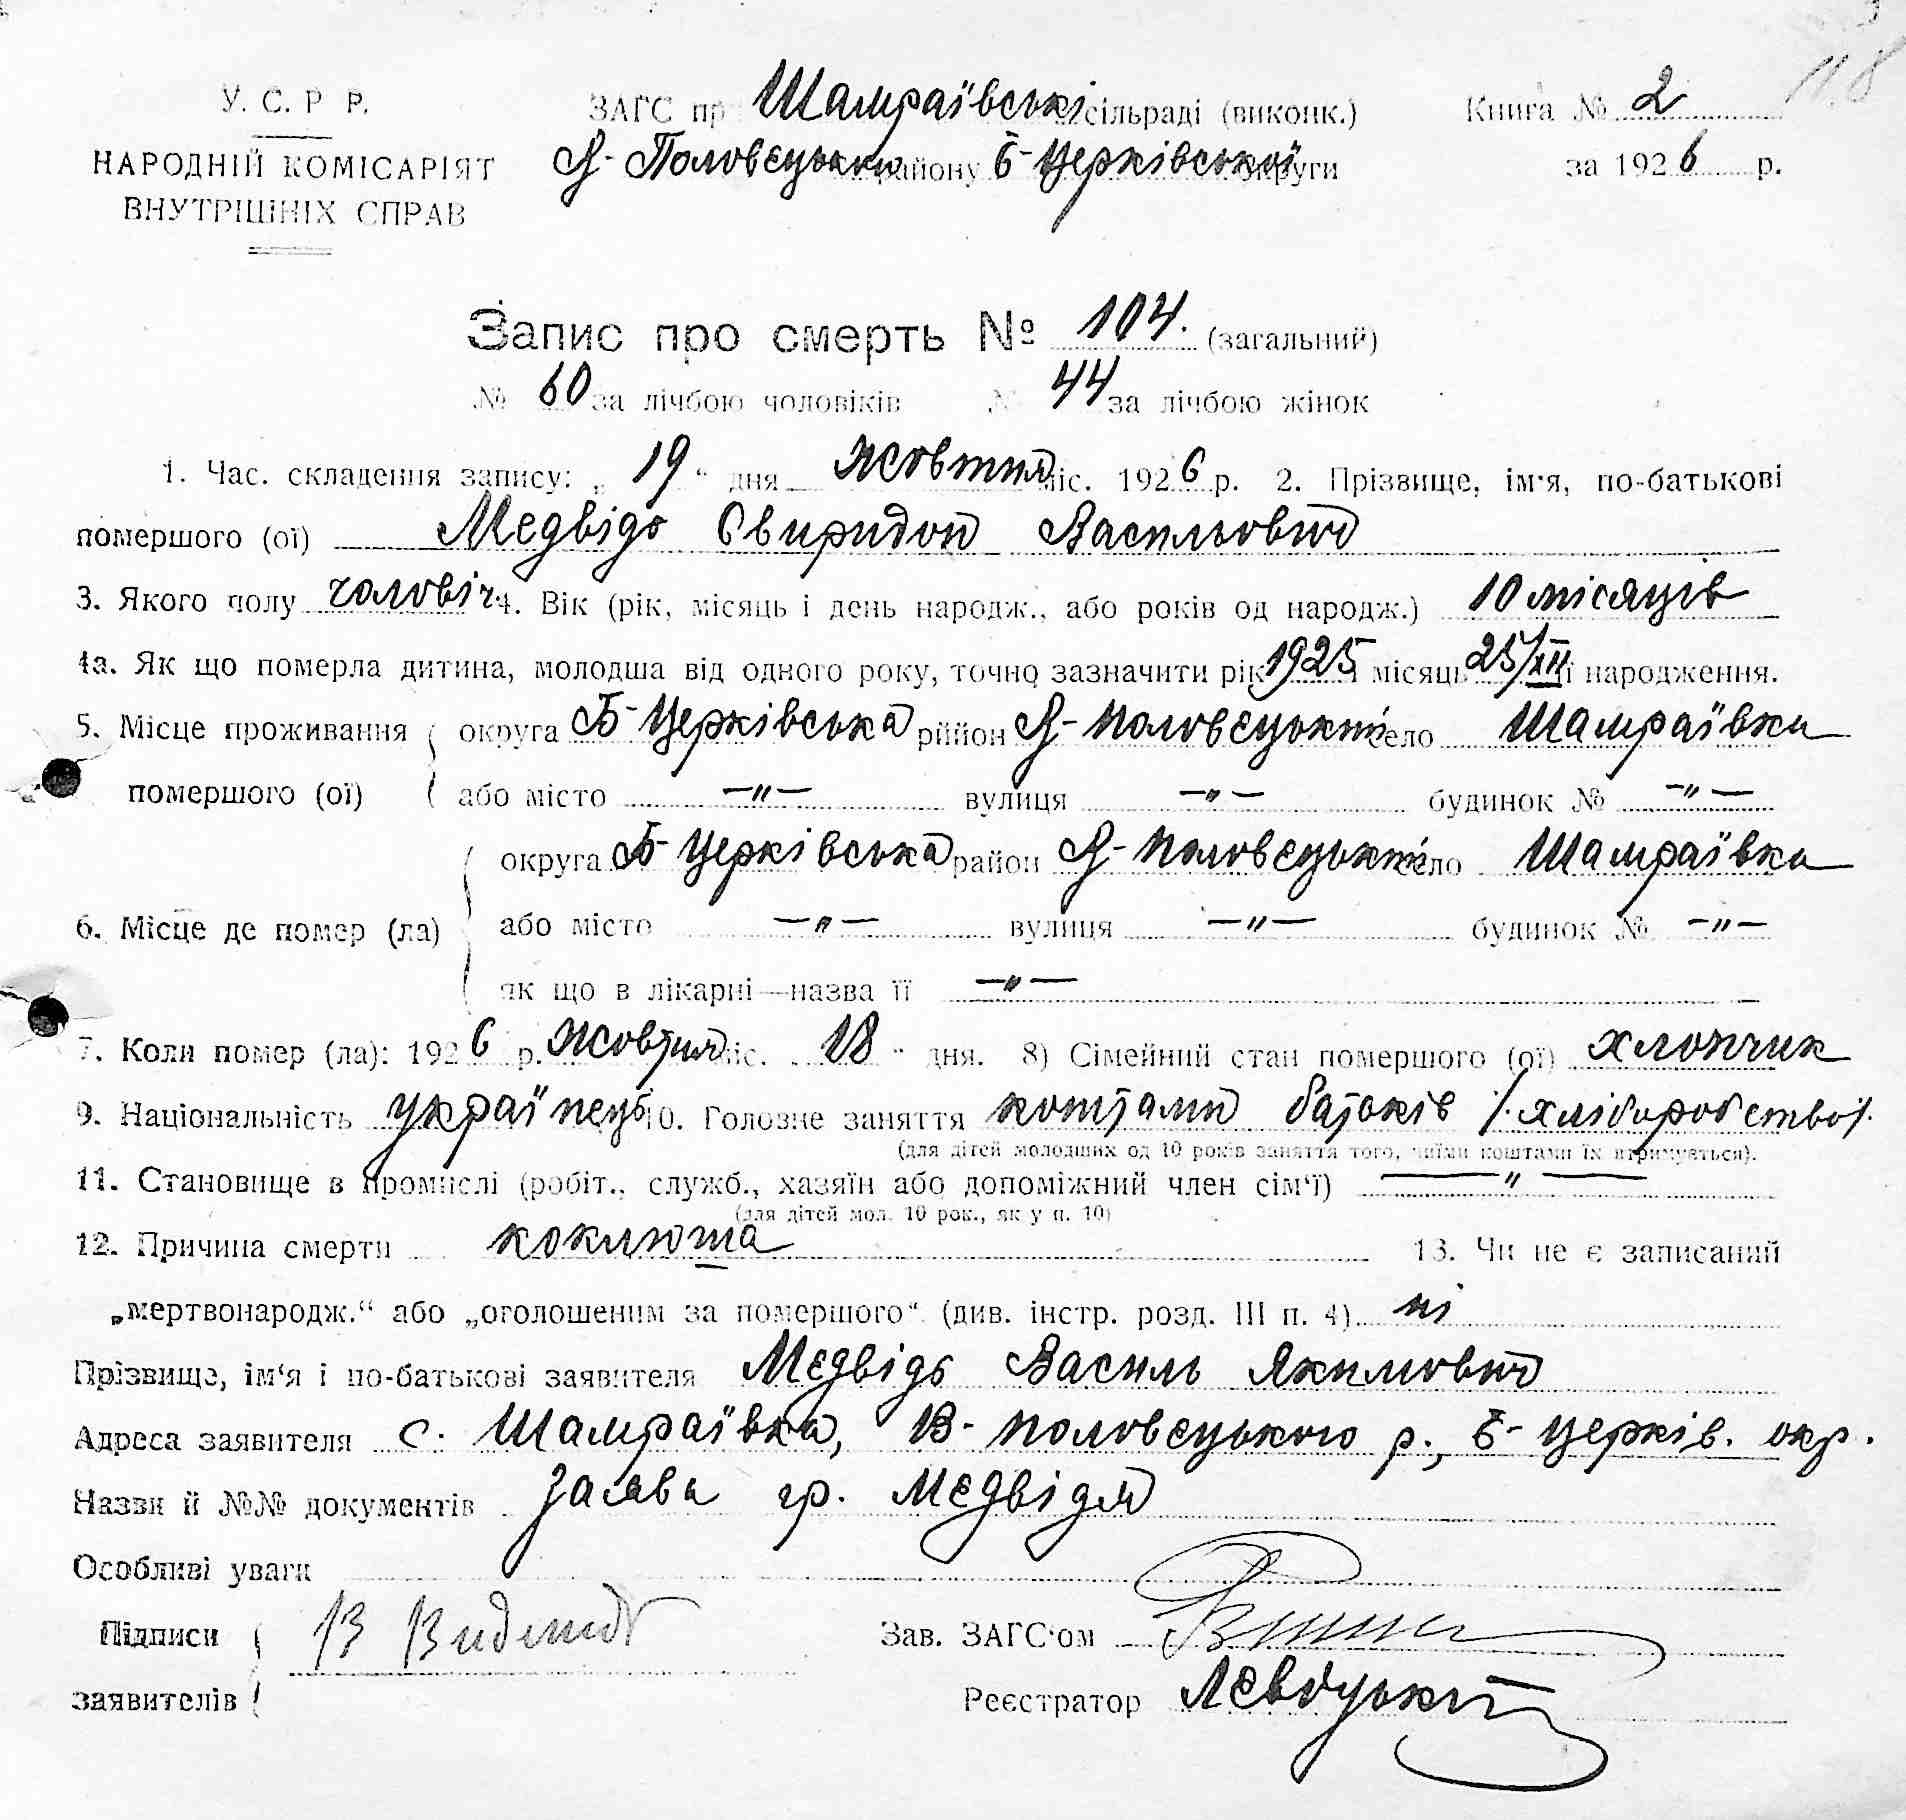 118
У. С. Р Р.
НАРОДНІЙ КОМІСАРІЯТ
ВНУТРІШНІХ СПРАВ
ЗАГС пр Шамраївські сільраді (виконк.)
В-Половецьки району Б-Церківської округи
Книга № 2
за 1926 р.
Запис про смерть № 104. (загальний)
№ 60 за лічбою чоловіків № 44 за лічбою жінок
1. Час. складення запису: „ 19 “ дня жовтня міс. 1926 р. 2. Прізвище, ім'я, по-батькові
помершого (ої) Медвідь Свиридон Васильович
3. Якого полу чоловіч 4. Вік (рік, місяць і день народж., або років од народж.) 10 місяців
4а. Як що померла дитина, молодша від одного року, точно зазначити рік 1925 місяць 25/XII і народження.
5. Місце проживання округа Б-Церківська район В-Половецький село Шамраївка
помершого (ої) або місто —"— вулиця —"— будинок № —"—
округа Б-Церківська район В-Половецький село Шамраївка
6. Місце де помер (ла) або місто —"— вулиця —"— будинок № —"—
як що в лікарні—назва її —"—
7. Коли помер (ла): 1926 р. жовтня міс. „ 18 “ дня. 8) Сімейний стан помершого (ої) хлопчик
9. Національність українець 10. Головне заняття коштами батьків /. хліборобство/.
(для дітей молодших од 10 років заняття того, чиїми коштами їх втримується).
11. Становище в промислі (робіт., служб., хазяїн або допоміжний член сім'ї) —"—
(для дітей мол. 10 рок., як у п. 10)
12. Причина смерти коклюша 13. Чи не є записаний
„мертвонародж.“ або „оголошеним за помершого“ (див. інстр. розд. III п. 4) ні
Прізвище, ім'я і по-батькові заявителя Медвідь Василь Якимович
Адреса заявителя с. Шамраївка, В-Половецького р., Б-Церків. окр.
Назви й №№ документів Заява гр. Медвідя
Особливі уваги
Підписи В
Зав. ЗАГС'ом
заявителів
Реєстратор